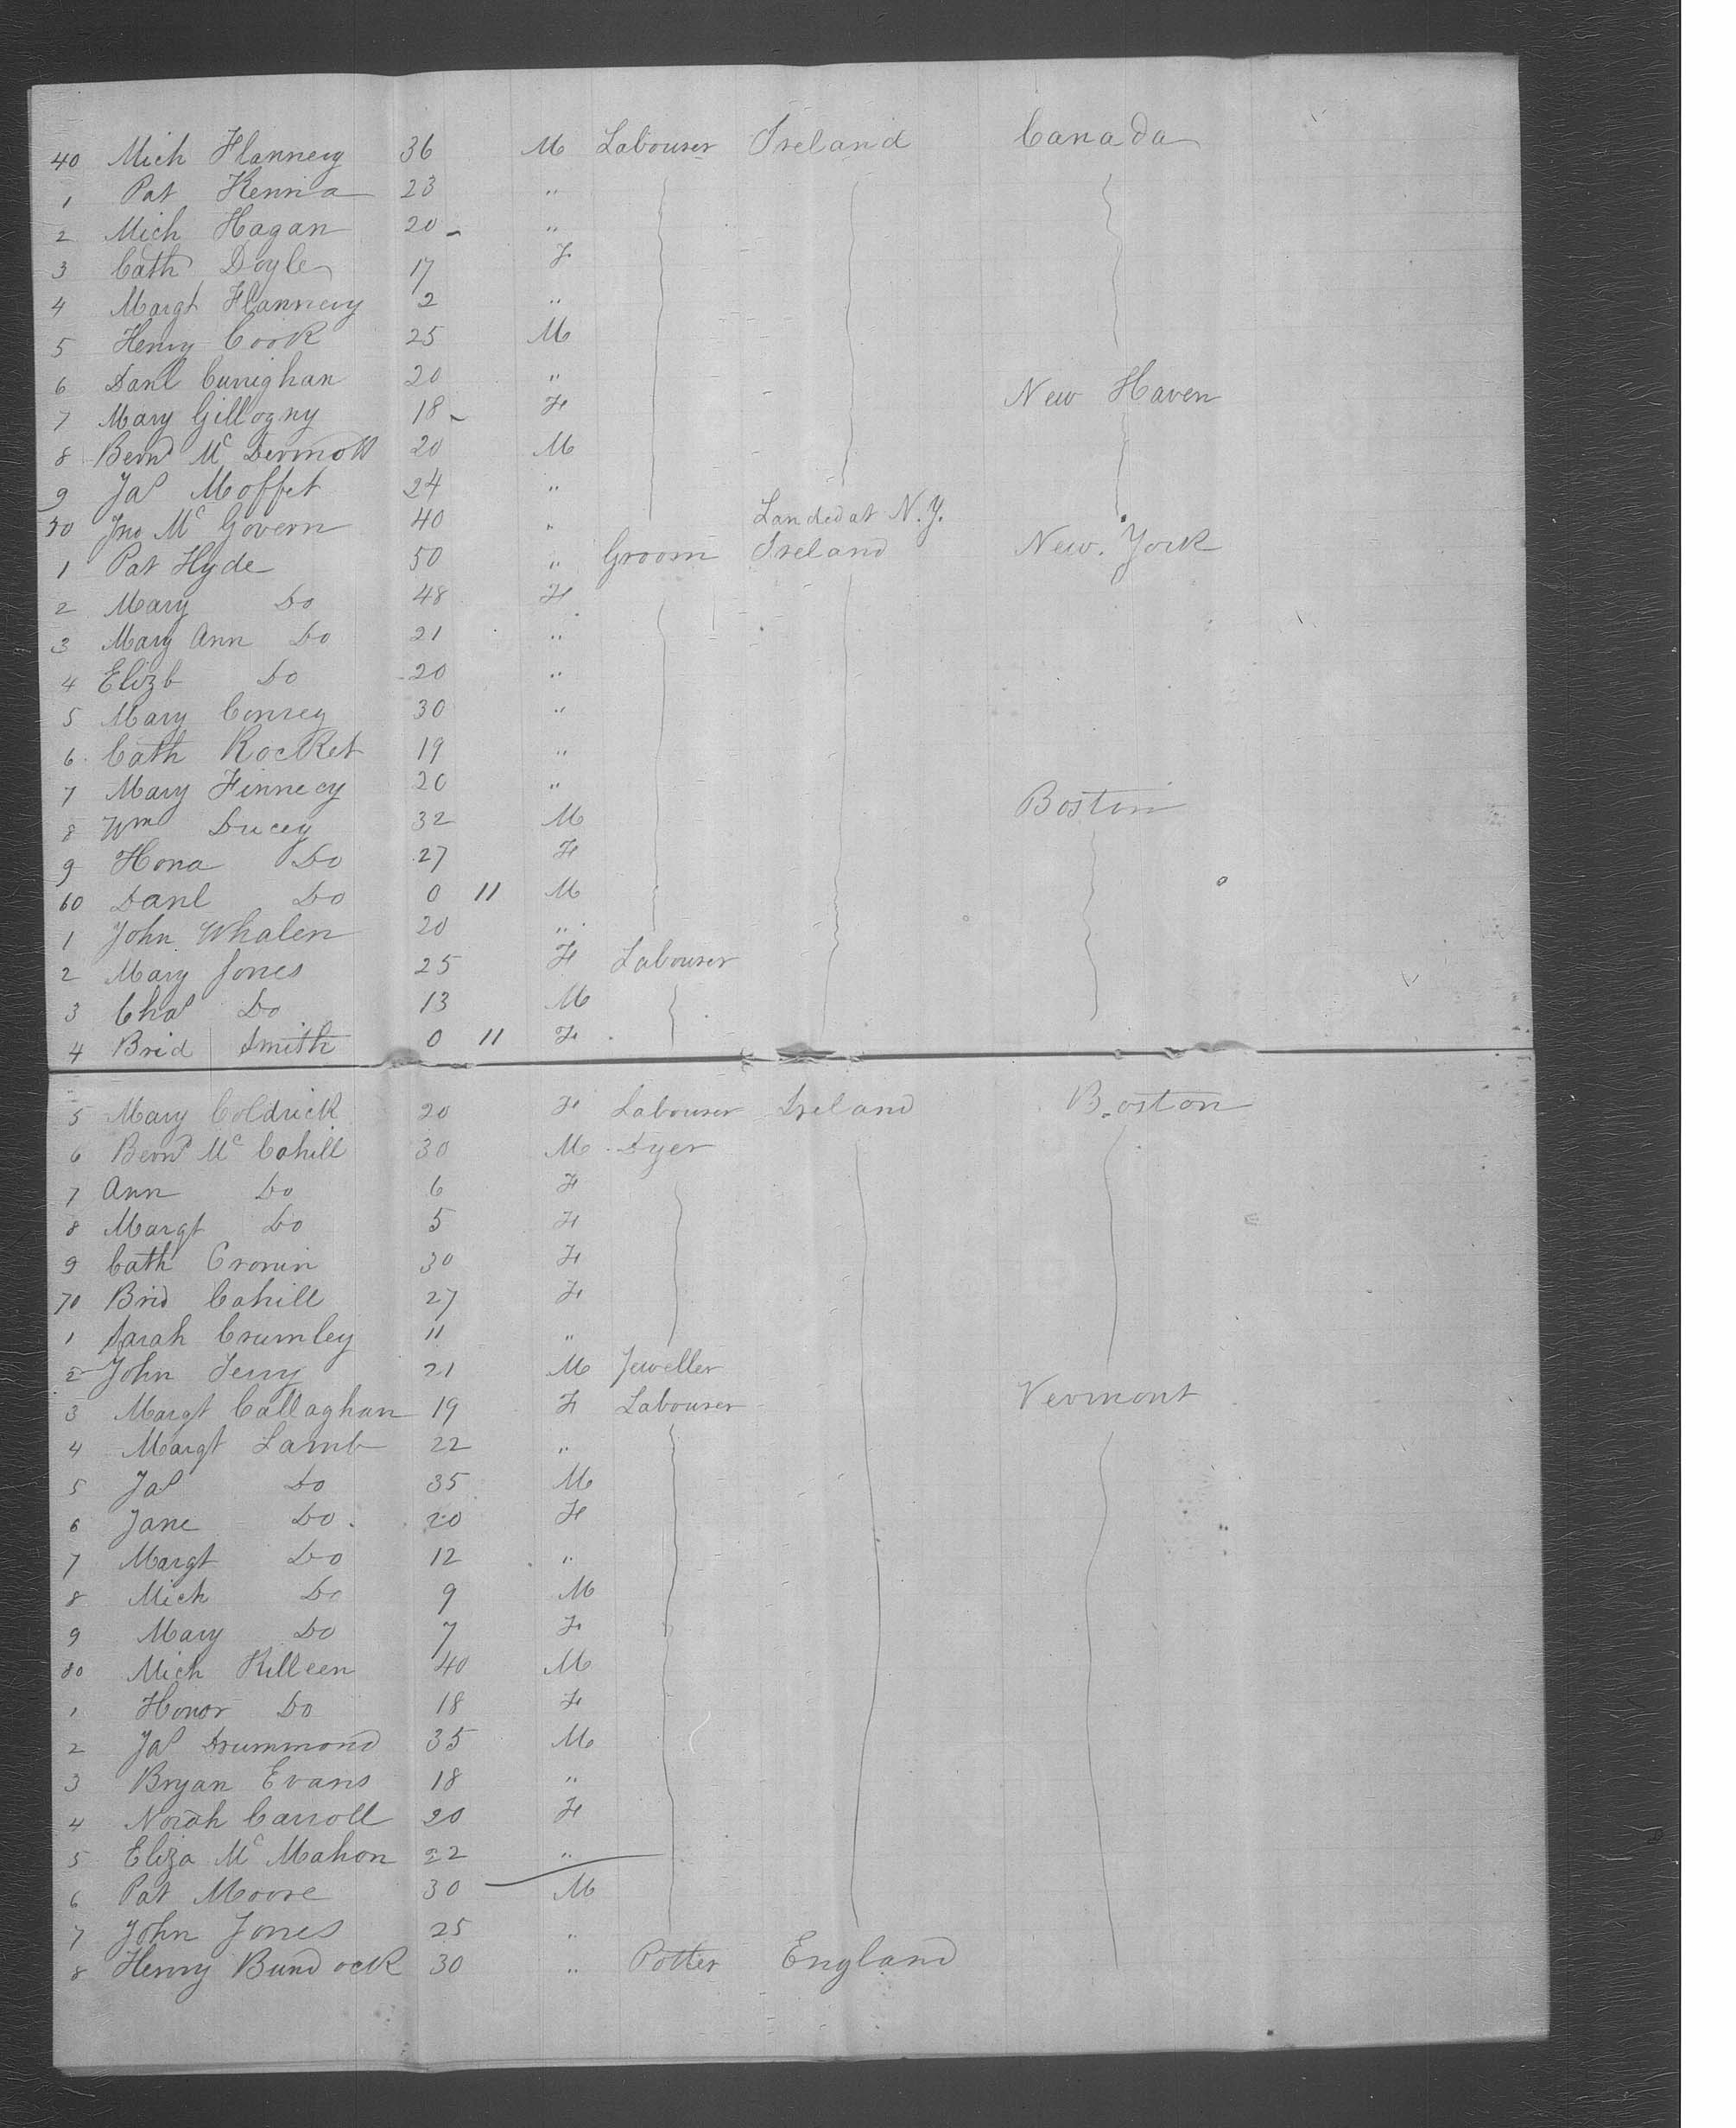 40 Mich Flannery 36 M Labourer Ireland Canada
1 Pat Kenna 23 "
2 Mich Hagan 20 "
3 Cath Doyle 17 F
4 Margt Flannery 2 "
5 Henry Cook 25 M
6 Danl Cunighan 20 "
7 Mary Gillogny 18 F New Haven
8 Bernd Mc Dermott 20 M
9 Jas Moffet 24 "
50 Jno Mc Govern 40 " Landed at N.Y.
1 Pat Hyde 50 " Groom Ireland New York
2 Mary Do 48 F
3 Mary Ann Do 21 "
4 Elizb Do 20 "
5 Mary Conrey 30 "
6 Cath Rocket 19 "
7 Mary Finnecy 20 "
8 Wm Ducey 32 M Boston
9 Hona Do 27 F
60 Danl Do 0 11 M
1 John Whalen 20 "
2 Mary Jones 25 F Labourer
3 Chas Do 13 M
4 Brid Smith 0 11 F
5 Mary Coldrick 20 F Labourer Ireland Boston
6 Bernd Mc Cahill 30 M Dyer
7 Ann Do 6 F
8 Margt Do 5 F
9 Cath Cronin 30 F
70 Brid Cahill 27 F
1 Sarah Crumley 11 "
2 John Terry 21 M Jeweller
3 Margt Callaghan 19 F Labourer Vermont
4 Margt Lamb 22 "
5 Jas Do 35 M
6 Jane Do 20 F
7 Margt Do 12 "
8 Mich Do 9 M
9 Mary Do 7 F
80 Mich Killeen 40 M
1 Honor Do 18 F
2 Jas Drummond 35 M
3 Bryan Evans 18 "
4 Norah Carroll 20 F
5 Eliza Mc Mahon 22 "
6 Pat Moore 30 M
7 John Jones 25 "
8 Henry Bundock 30 " Potter England